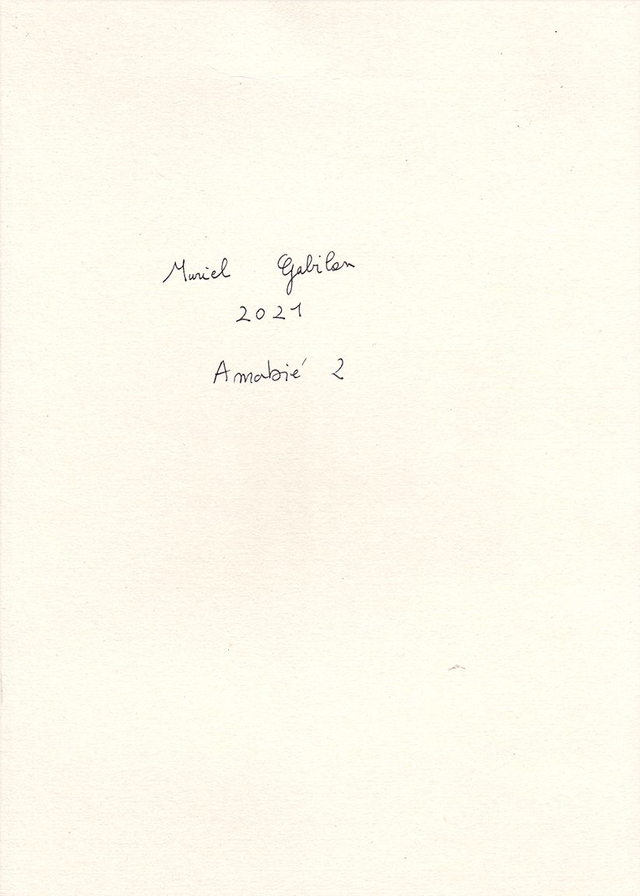 Muriel Gabilan
2021
Amabié 2